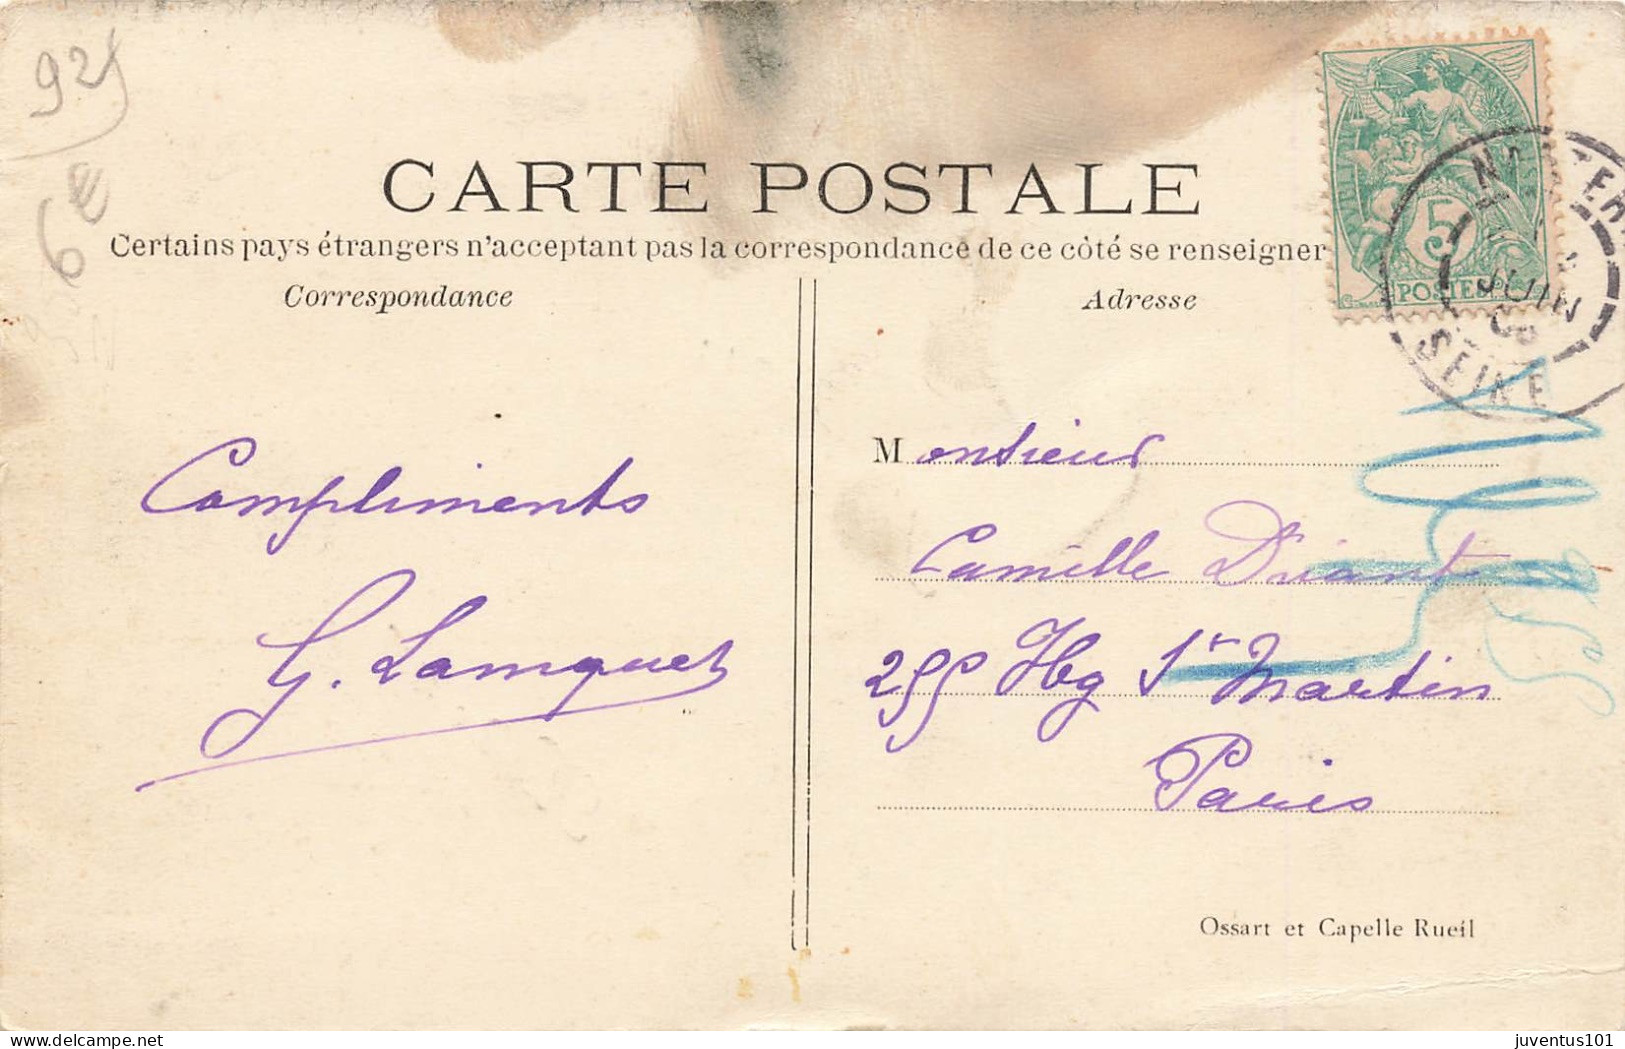 925
6€
CARTE POSTALE
Certains pays étrangers n'acceptant pas la correspondance de ce côté se renseigner
Correspondance
Adresse
5
POSTES
NANTERRE
JUIN
SEINE
Compliments
G. Lamquet
Monsieur
Camille Driant
255 Fbg St Martin
Paris
Ossart et Capelle Rueil
delcampe.net
juventus101